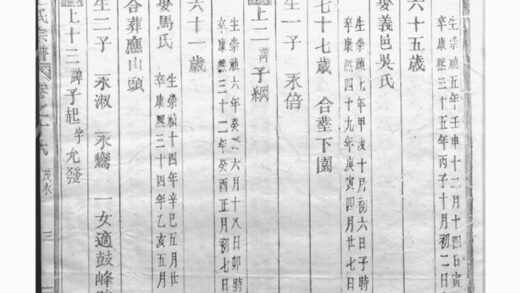 生崇禎五年壬申十二月十四日寅
卒康熙三十五年丙子十月初二日
六十五歲
娶義邑吳氏
生崇禎七年甲戌十月初六日子時
卒康熙四十九年庚寅四月廿七日
七十七歲 合塟下園
生一子 永倍
上二諱子綱
生崇禎六年癸 六月十八日卯時
卒康熙三十二年癸酉正月初七日
六十一歲
娶馬氏
生崇禎十四年辛巳五月廿
卒康熙三十四年乙亥五月
合葬應山頭
生二子 永淑 永鸞 一女適鼓峰
上十三諱子起字允發
氏宗譜 卷之 六 茂永 三